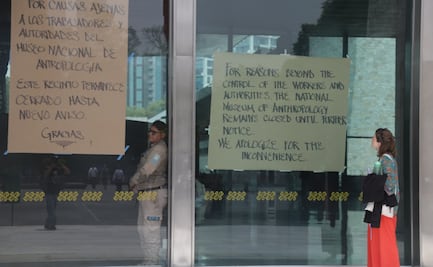 POR CAUSAS AJENAS
A LOS TRABAJADORES Y
AUTORIDADES DEL
MUSEO NACIONAL DE
ANTROPOLOGÍA
ESTE RECINTO PERMANECE
CERRADO HASTA
NUEVO AVISO
GRACIAS
FOR REASONS BEYOND THE
CONTROL OF THE WORKERS AND
AUTHORITIES THE NATIONAL
MUSEUM OF ANTHROPOLOGY
REMAINS CLOSED UNTIL FURTHER
NOTICE.
WE APOLOGIZE FOR THE
INCONVENIENCE.